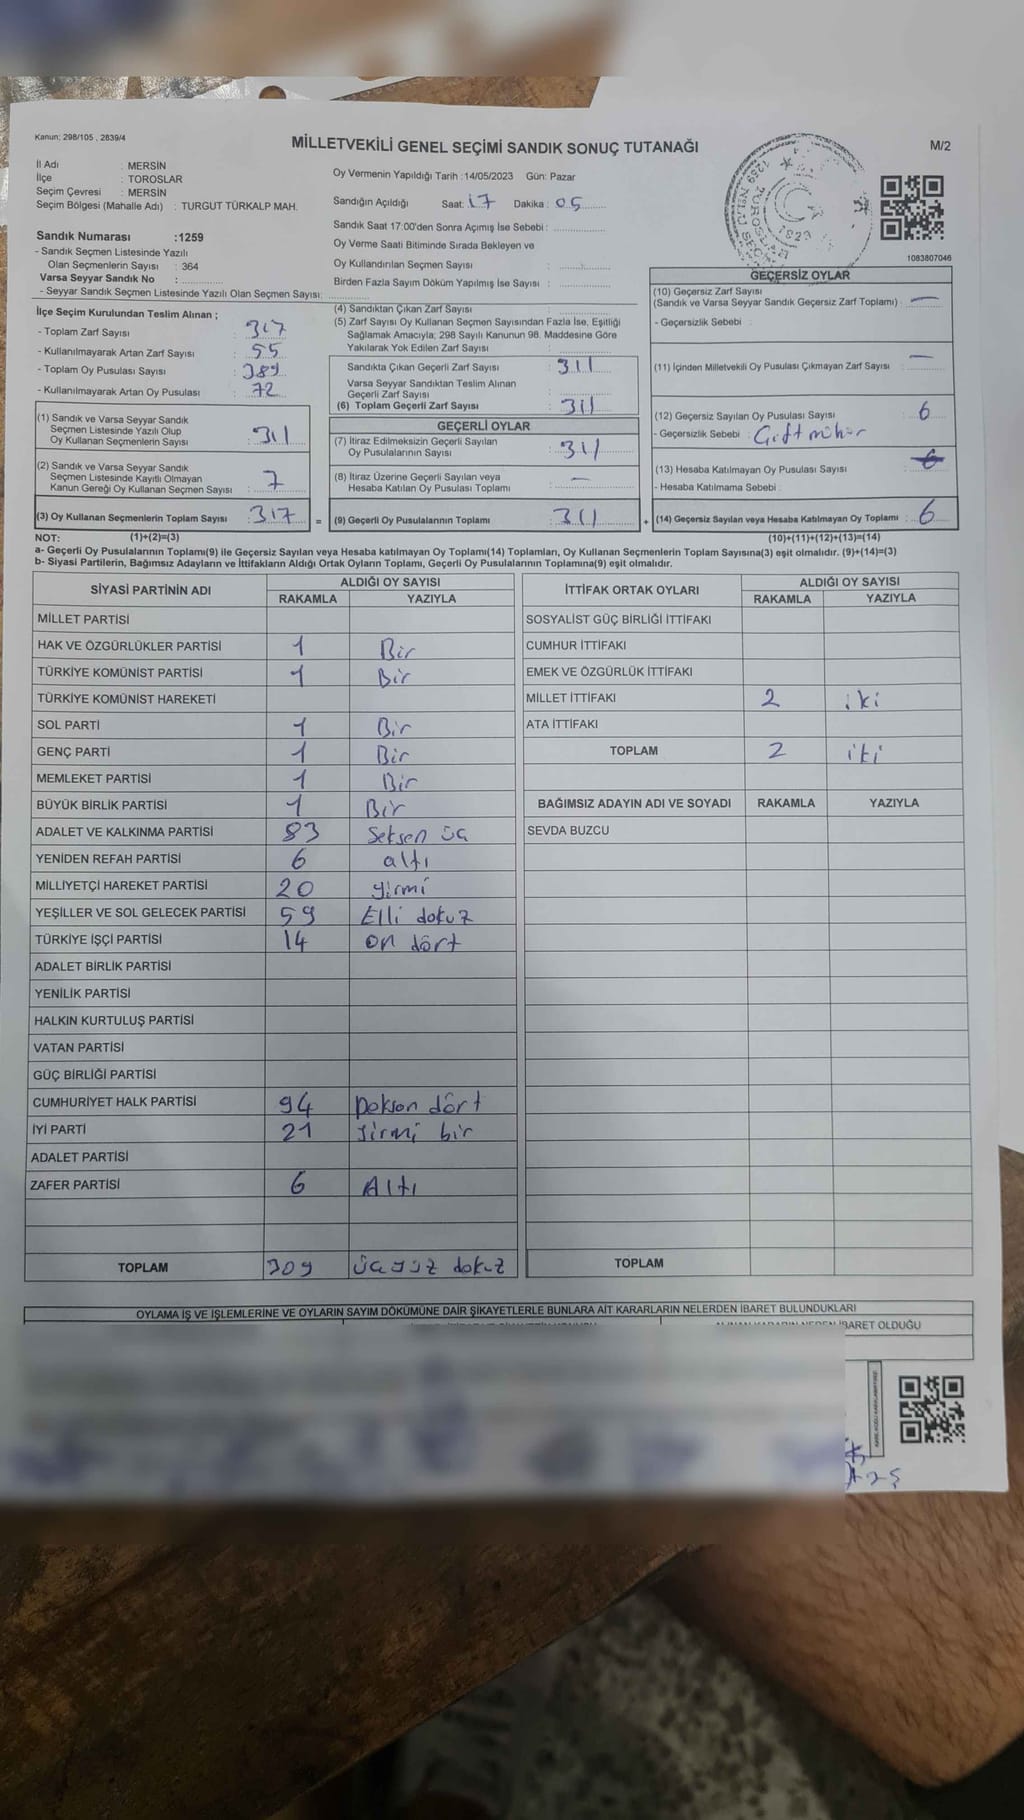 Kanun; 298/105 , 2839/4
MİLLETVEKİLİ GENEL SEÇİMİ SANDIK SONUÇ TUTANAĞI
M/2
İl Adı : MERSİN
İlçe : TOROSLAR
Seçim Çevresi : MERSİN
Seçim Bölgesi (Mahalle Adı) : TURGUT TÜRKALP MAH.
Oy Vermenin Yapıldığı Tarih :14/05/2023 Gün: Pazar
Sandığın Açıldığı Saat: 17 Dakika : 05
Sandık Saat 17:00'den Sonra Açımış İse Sebebi :
Oy Verme Saati Bitiminde Sırada Bekleyen ve
Oy Kullandırılan Seçmen Sayısı :
Birden Fazla Sayım Döküm Yapılmış İse Sayısı :
1083807046
Sandık Numarası :1259
- Sandık Seçmen Listesinde Yazılı
Olan Seçmenlerin Sayısı : 364
Varsa Seyyar Sandık No :
- Seyyar Sandık Seçmen Listesinde Yazılı Olan Seçmen Sayısı:
İlçe Seçim Kurulundan Teslim Alınan ;
- Toplam Zarf Sayısı : 317
- Kullanılmayarak Artan Zarf Sayısı : 55
- Toplam Oy Pusulası Sayısı : 389
- Kullanılmayarak Artan Oy Pusulası : 72
(1) Sandık ve Varsa Seyyar Sandık
Seçmen Listesinde Yazılı Olup
Oy Kullanan Seçmenlerin Sayısı : 311
(2) Sandık ve Varsa Seyyar Sandık
Seçmen Listesinde Kayıtlı Olmayan
Kanun Gereği Oy Kullanan Seçmen Sayısı : 7
(3) Oy Kullanan Seçmenlerin Toplam Sayısı : 317 =
(4) Sandıktan Çıkan Zarf Sayısı :
(5) Zarf Sayısı Oy Kullanan Seçmen Sayısından Fazla İse, Eşitliği
Sağlamak Amacıyla; 298 Sayılı Kanunun 98. Maddesine Göre
Yakılarak Yok Edilen Zarf Sayısı :
Sandıkta Çıkan Geçerli Zarf Sayısı : 311
Varsa Seyyar Sandıktan Teslim Alınan
Geçerli Zarf Sayısı :
(6) Toplam Geçerli Zarf Sayısı : 311
GEÇERLİ OYLAR
(7) İtiraz Edilmeksizin Geçerli Sayılan
Oy Pusulalarının Sayısı : 311
(8) İtiraz Üzerine Geçerli Sayılan veya
Hesaba Katılan Oy Pusulası Toplamı : —
(9) Geçerli Oy Pusulalarının Toplamı : 311 +
GEÇERSİZ OYLAR
(10) Geçersiz Zarf Sayısı
(Sandık ve Varsa Seyyar Sandık Geçersiz Zarf Toplamı) : —
- Geçersizlik Sebebi :
(11) İçinden Milletvekili Oy Pusulası Çıkmayan Zarf Sayısı : —
(12) Geçersiz Sayılan Oy Pusulası Sayısı : 6
- Geçersizlik Sebebi : Çift mühür
(13) Hesaba Katılmayan Oy Pusulası Sayısı :
- Hesaba Katılmama Sebebi :
(14) Geçersiz Sayılan veya Hesaba Katılmayan Oy Toplamı : 6
NOT: (1)+(2)=(3) (10)+(11)+(12)+(13)=(14)
a- Geçerli Oy Pusulalarının Toplamı(9) ile Geçersiz Sayılan veya Hesaba katılmayan Oy Toplamı(14) Toplamları, Oy Kullanan Seçmenlerin Toplam Sayısına(3) eşit olmalıdır. (9)+(14)=(3)
b- Siyasi Partilerin, Bağımsız Adayların ve İttifakların Aldığı Ortak Oyların Toplamı, Geçerli Oy Pusulalarının Toplamına(9) eşit olmalıdır.
SİYASİ PARTİNİN ADI ALDIĞI OY SAYISI
RAKAMLA YAZIYLA
MİLLET PARTİSİ
HAK VE ÖZGÜRLÜKLER PARTİSİ 1 Bir
TÜRKİYE KOMÜNİST PARTİSİ 1 Bir
TÜRKİYE KOMÜNİST HAREKETİ
SOL PARTİ 1 Bir
GENÇ PARTİ 1 Bir
MEMLEKET PARTİSİ 1 Bir
BÜYÜK BİRLİK PARTİSİ 1 Bir
ADALET VE KALKINMA PARTİSİ 83 Seksen üç
YENİDEN REFAH PARTİSİ 6 altı
MİLLİYETÇİ HAREKET PARTİSİ 20 yirmi
YEŞİLLER VE SOL GELECEK PARTİSİ 59 Elli dokuz
TÜRKİYE İŞÇİ PARTİSİ 14 on dört
ADALET BİRLİK PARTİSİ
YENİLİK PARTİSİ
HALKIN KURTULUŞ PARTİSİ
VATAN PARTİSİ
GÜÇ BİRLİĞİ PARTİSİ
CUMHURİYET HALK PARTİSİ 94 Doksan dört
İYİ PARTİ 21 yirmi bir
ADALET PARTİSİ
ZAFER PARTİSİ 6 Altı
TOPLAM 309 üçyüz dokuz
İTTİFAK ORTAK OYLARI ALDIĞI OY SAYISI
RAKAMLA YAZIYLA
SOSYALİST GÜÇ BİRLİĞİ İTTİFAKI
CUMHUR İTTİFAKI
EMEK VE ÖZGÜRLÜK İTTİFAKI
MİLLET İTTİFAKI 2 iki
ATA İTTİFAKI
TOPLAM 2 iki
BAĞIMSIZ ADAYIN ADI VE SOYADI RAKAMLA YAZIYLA
SEVDA BUZCU
TOPLAM
OYLAMA İŞ VE İŞLEMLERİNE VE OYLARIN SAYIM DÖKÜMÜNE DAİR ŞİKAYETLERLE BUNLARA AİT KARARLARIN NELERDEN İBARET BULUNDUKLARI
İBARET OLDUĞU